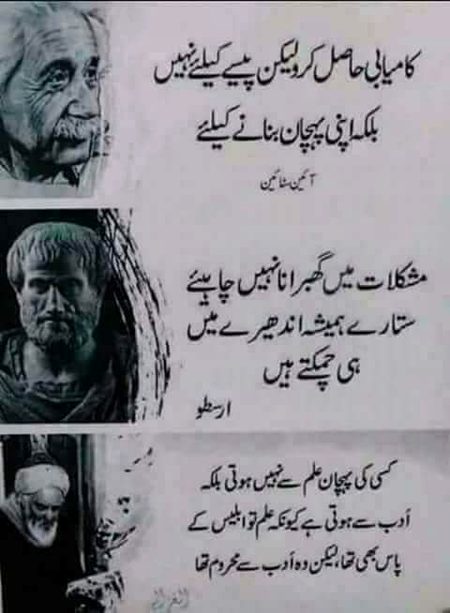 کامیابی حاصل کرو لیکن پیسے کیلئے نہیں
بلکہ اپنی پہچان بنانے کیلئے
آئین سٹائین
مشکلات میں گھبرانا نہیں چاہیئے
ستارے ہمیشہ اندھیرے میں
ہی چمکتے ہیں
ارسطو
کسی کی پہچان علم سے نہیں ہوتی بلکہ
أدب سے ہوتی ہے کیونکہ علم تو ابلیس کے
پاس بھی تھا، لیکن وہ أدب سے محروم تھا